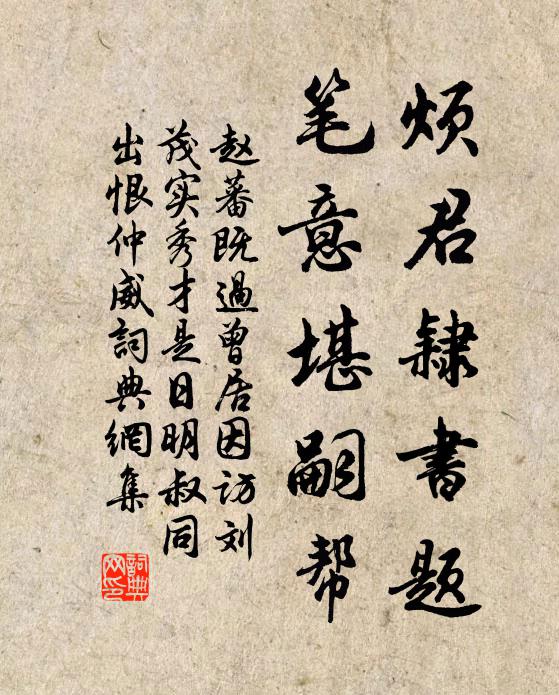 烦君隷书题
笔意堪嗣帮
赵蕃既過曾居因访刘
茂实秀才是日明叔同
出恨仲威詞典網集
詞典网印